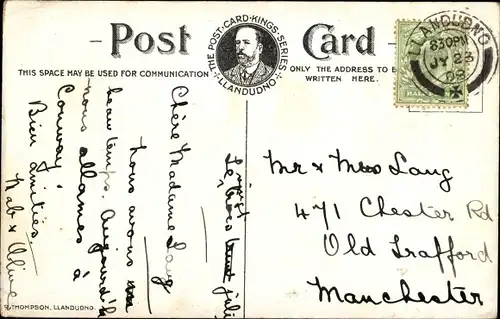 Post Card
THE POST-CARD-KINGS-SERIES
LLANDUDNO
THIS SPACE MAY BE USED FOR COMMUNICATION
ONLY THE ADDRESS TO BE
WRITTEN HERE.
LLANDUDNO
8 30 PM
JY 23
09
HALF
Chère Madame Lang
Nous avons un
beau temps. Aujourd'h
nous allames à
Conway
Bien Amitiés
Mr & Miss Lang
471 Chester Rd
Old Trafford
Manchester
THOMPSON, LLANDUDNO.